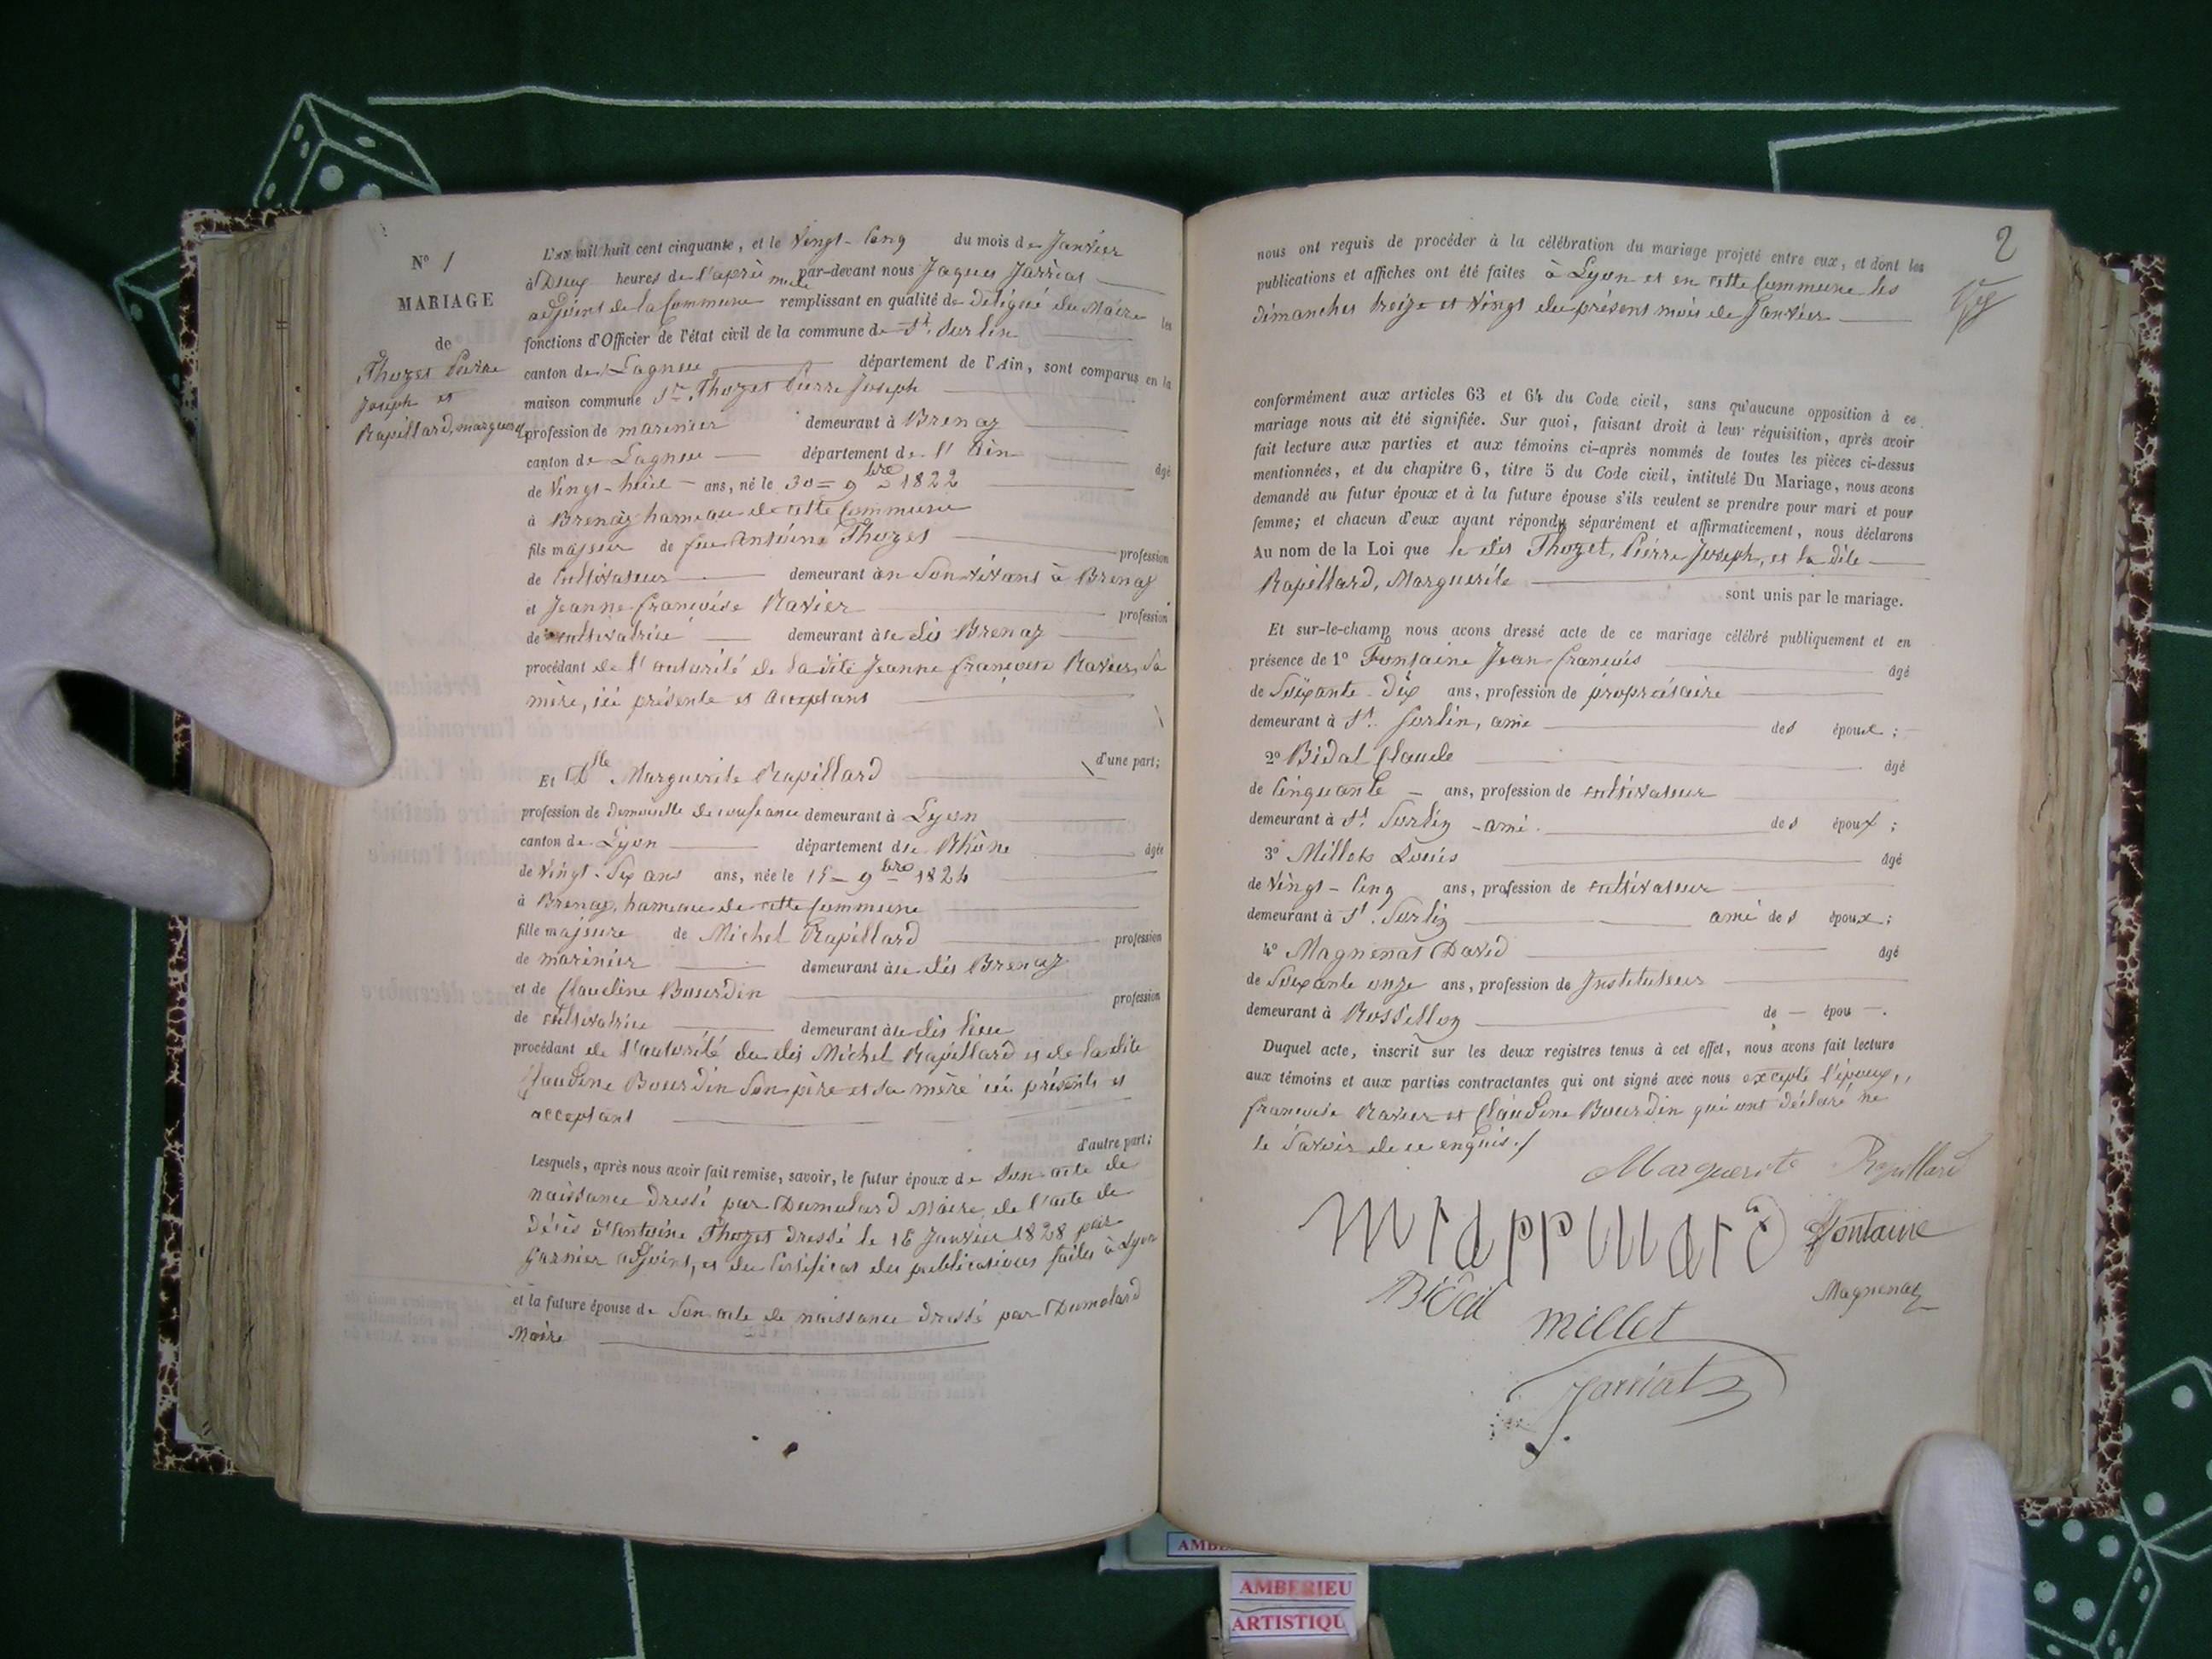 N° 1
MARIAGE
de
Thozet Pierre
Joseph et
Rapillard, marguerite
L'an mil huit cent cinquante, et le Vingt-Cinq du mois de Janvier
à Deux heures de l'après midi par-devant nous Jaques Jarriat
adjoint de la Commune remplissant en qualité de Délégué du Maire les
fonctions d'Officier de l'état civil de la commune de St. Sorlin
canton de Lagnieu département de l'Ain, sont comparus en la
maison commune Sr. Thozet Pierre Joseph
profession de marinier demeurant à Brenaz
canton de Lagnieu département de l'Ain âgé
de Vingt-huit ans, né le 30 = 9bre = 1822
à Brenaz hameau de cette Commune
fils majeur de feu Antoine Thozet profession
de Cultivateur demeurant en Son vivant à Brenaz
et Jeanne françoise Ravier profession
de cultivatrice demeurant au dit Brenaz
procédant de l'autorité de la dite Jeanne françoise Ravier, Sa
mère, ici présente et acceptant
d'une part;
Et Dlle Marguerite Rapillard
profession de demoiselle de confiance demeurant à Lyon
canton de Lyon département du Rhône âgée
de Vingt-Six ans ans, née le 15 = 9bre = 1824
à Brenaz, hameau de cette Commune
fille majeure de Michel Rapillard profession
de marinier demeurant au dit Brenaz
et de Claudine Bourdin profession
de cultivatrice demeurant au dit lieu
procédant de l'autorité du dit Michel Rapillard et de la dite
Claudine Bourdin Son père et sa mère ici présents et
acceptant
d'autre part;
Lesquels, après nous avoir fait remise, savoir, le futur époux de Son acte de
naissance dressé par Dumolard Maire, de l'acte de
décès d'Antoine Thozet dressé le 18 Janvier 1828 par
Garnier adjoint, et du Certificat des publications faites à Lyon
et la future épouse de Son acte de naissance dressé par Dumolard
Maire
2
nous ont requis de procéder à la célébration du mariage projeté entre eux, et dont les
publications et affiches ont été faites à Lyon et en cette Commune les
dimanches treize et Vingt du présent mois de Janvier
conformément aux articles 63 et 64 du Code civil, sans qu'aucune opposition à ce
mariage nous ait été signifiée. Sur quoi, faisant droit à leur réquisition, après avoir
fait lecture aux parties et aux témoins ci-après nommés de toutes les pièces ci-dessus
mentionnées, et du chapitre 6, titre 5 du Code civil, intitulé Du Mariage, nous avons
demandé au futur époux et à la future épouse s'ils veulent se prendre pour mari et pour
femme; et chacun d'eux ayant répondu séparément et affirmativement, nous déclarons
Au nom de la Loi que le dit Thozet, Pierre Joseph, et la dite
Rapillard, Marguerite sont unis par le mariage.
Et sur-le-champ nous avons dressé acte de ce mariage célébré publiquement et en
présence de 1° Fontaine Jean-françois âgé
de Soixante-dix ans, profession de propriétaire
demeurant à St. Sorlin, ami des époux;
2° Bidal Claude âgé
de Cinquante ans, profession de cultivateur
demeurant à St. Sorlin - ami des époux;
3° Millet Louis âgé
de Vingt-Cinq ans, profession de cultivateur
demeurant à St. Sorlin ami des époux;
4° Magnenat David âgé
de Soixante onze ans, profession de Instituteur
demeurant à Rossillon de — épou —.
Duquel acte, inscrit sur les deux registres tenus à cet effet, nous avons fait lecture
aux témoins et aux parties contractantes qui ont signé avec nous excepté l'époux,
françoise Ravier et Claudine Bourdin qui ont déclaré ne
le Savoir de ce enquis./
Marguerite Rapillard
Fontaine
Bidal
Magnenat
millet
Jarriat
AMBERIEU
ARTISTIQU